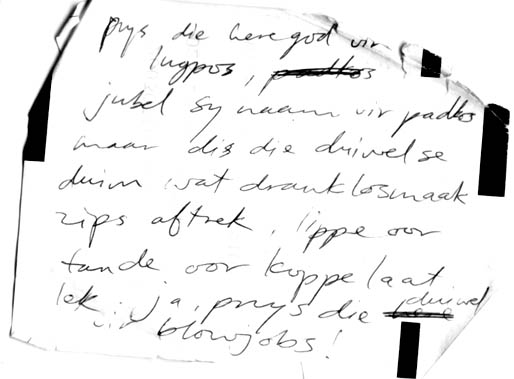 prys die here god vir
lugpos, padkos
jubel sy naam vir padkos
maar dis die duiwel se
duim wat drank losmaak
zips aftrek, lippe oor
tande oor koppe laat
lek, ja, prys die here duiwel
vir blowjobs!